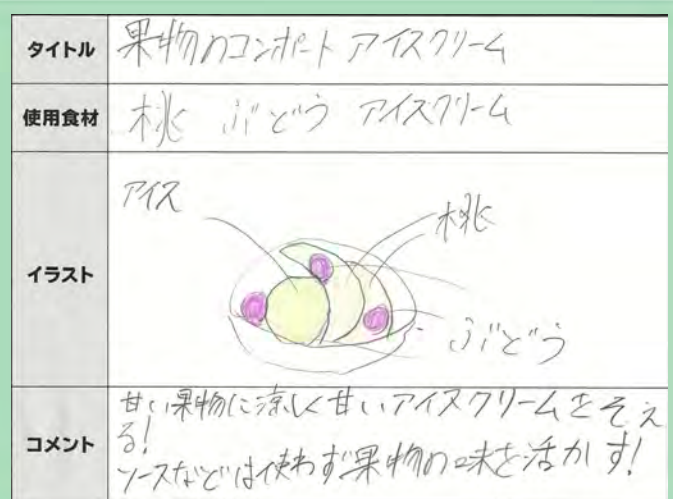 タイトル 果物のコンポート アイスクリーム
使用食材 桃 ぶどう アイスクリーム
イラスト
アイス
桃
ぶどう
コメント
甘い果物に涼しく甘いアイスクリームをそえ
る!
ソースなどは使わず果物の味を活かす!